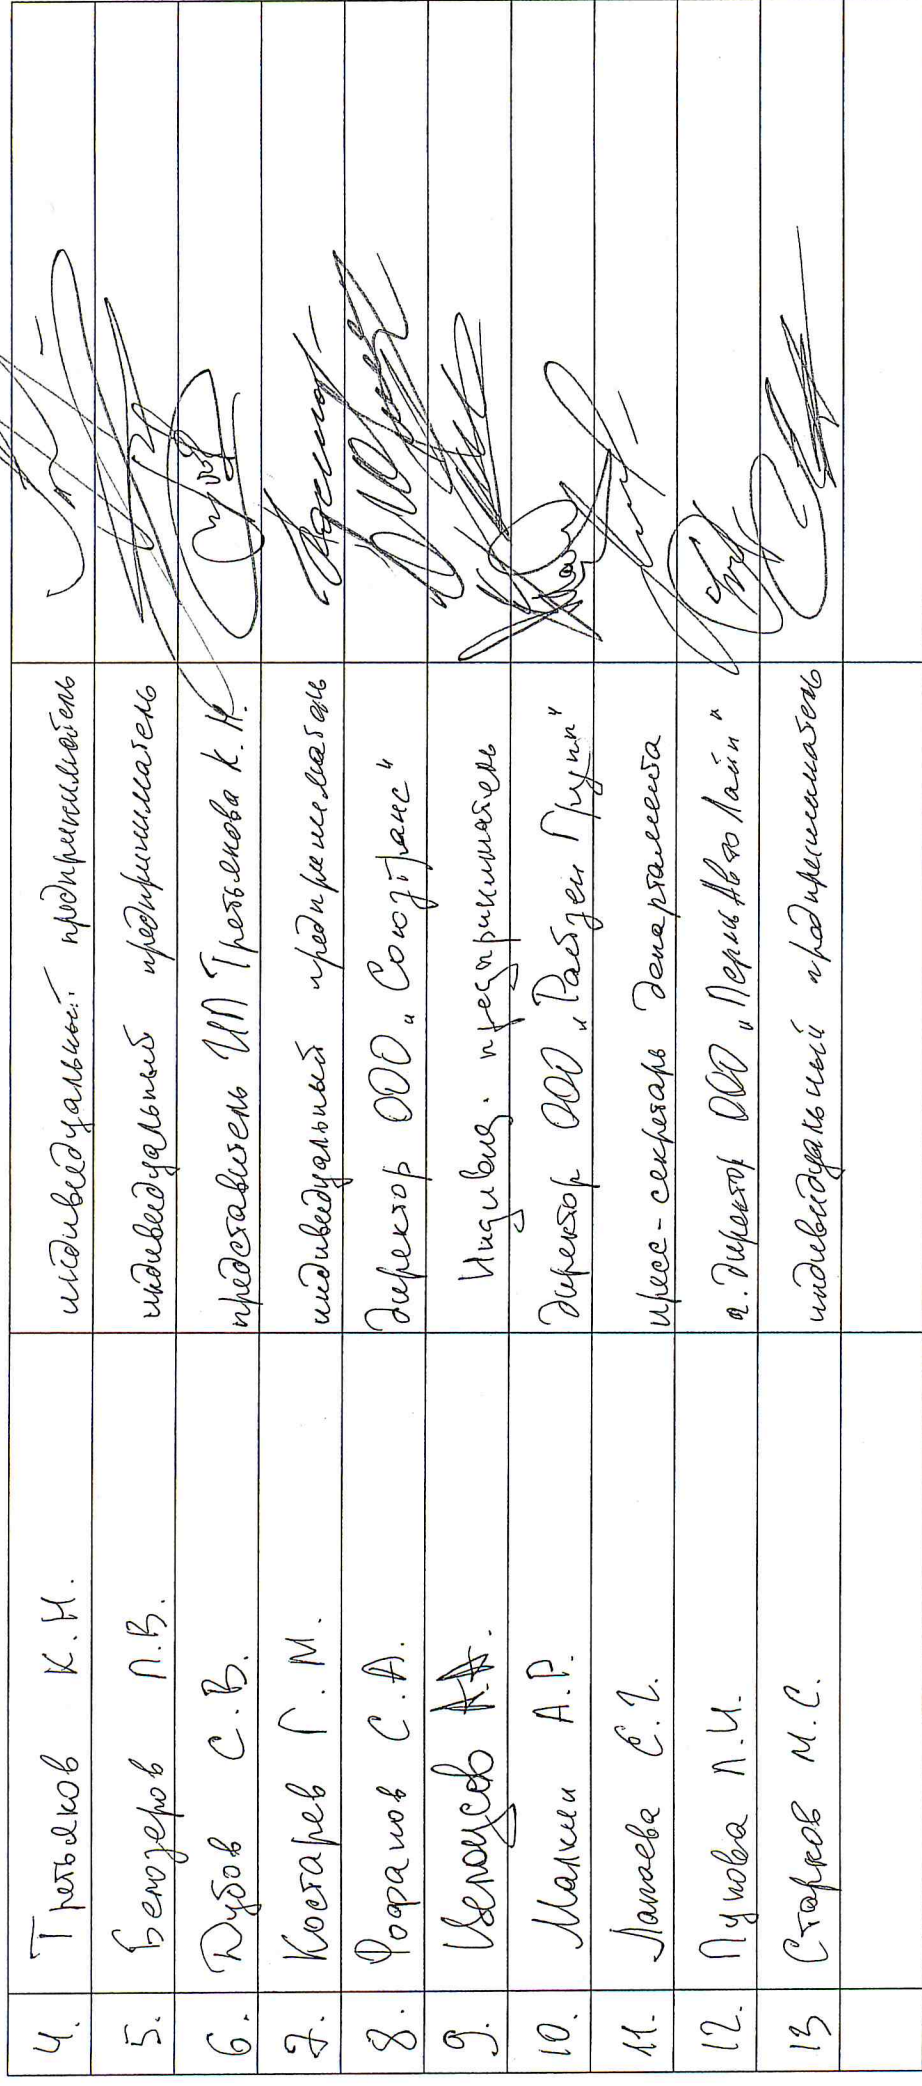 4. Третьяков К.Н. индивидуальный предприниматель
5. Белозеров Л.В. индивидуальный предприниматель
6. Дубов С.В. представитель ИП Третьякова К.Н.
7. Костарев Г.М. индивидуальный предприниматель
8. Фофанов С.А. директор ООО „СоюзТранс"
9. А.А. Индивид. предприниматель
10. Малкин А.Р. директор ООО Групп"
11. Лаптева Е.Г. пресс-секретарь департамента
12. Пункова Л.И. г. директор ООО „ПермьАвтоЛайн"
13 Старков М.С. индивидуальный предприниматель